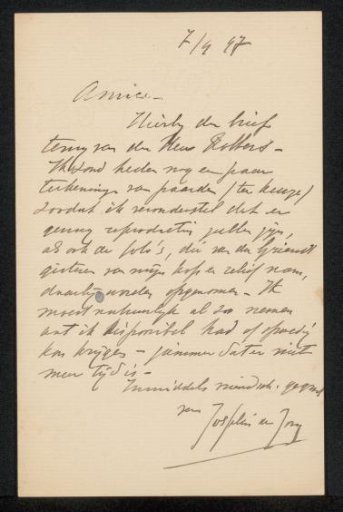 7/9 97
Amice -
Hierby den brief
terug van den Heer Robbers -
Ik zond heden nog een paar
teekeningen van paarden (ter keuze)
zoodat ik veronderstel dat er
genoeg reproductien zullen zijn,
als ook de foto's, die van de
gisteren van mijn kop en relief nam,
daarbij worden opgenomen - Ik
moest natuurlijk al zoo nemen
wat ik disponibel had of spoedig
kon krijgen - jammer dat er niet
meer tijd is -
Inmiddels vriendsch. gegroet
van